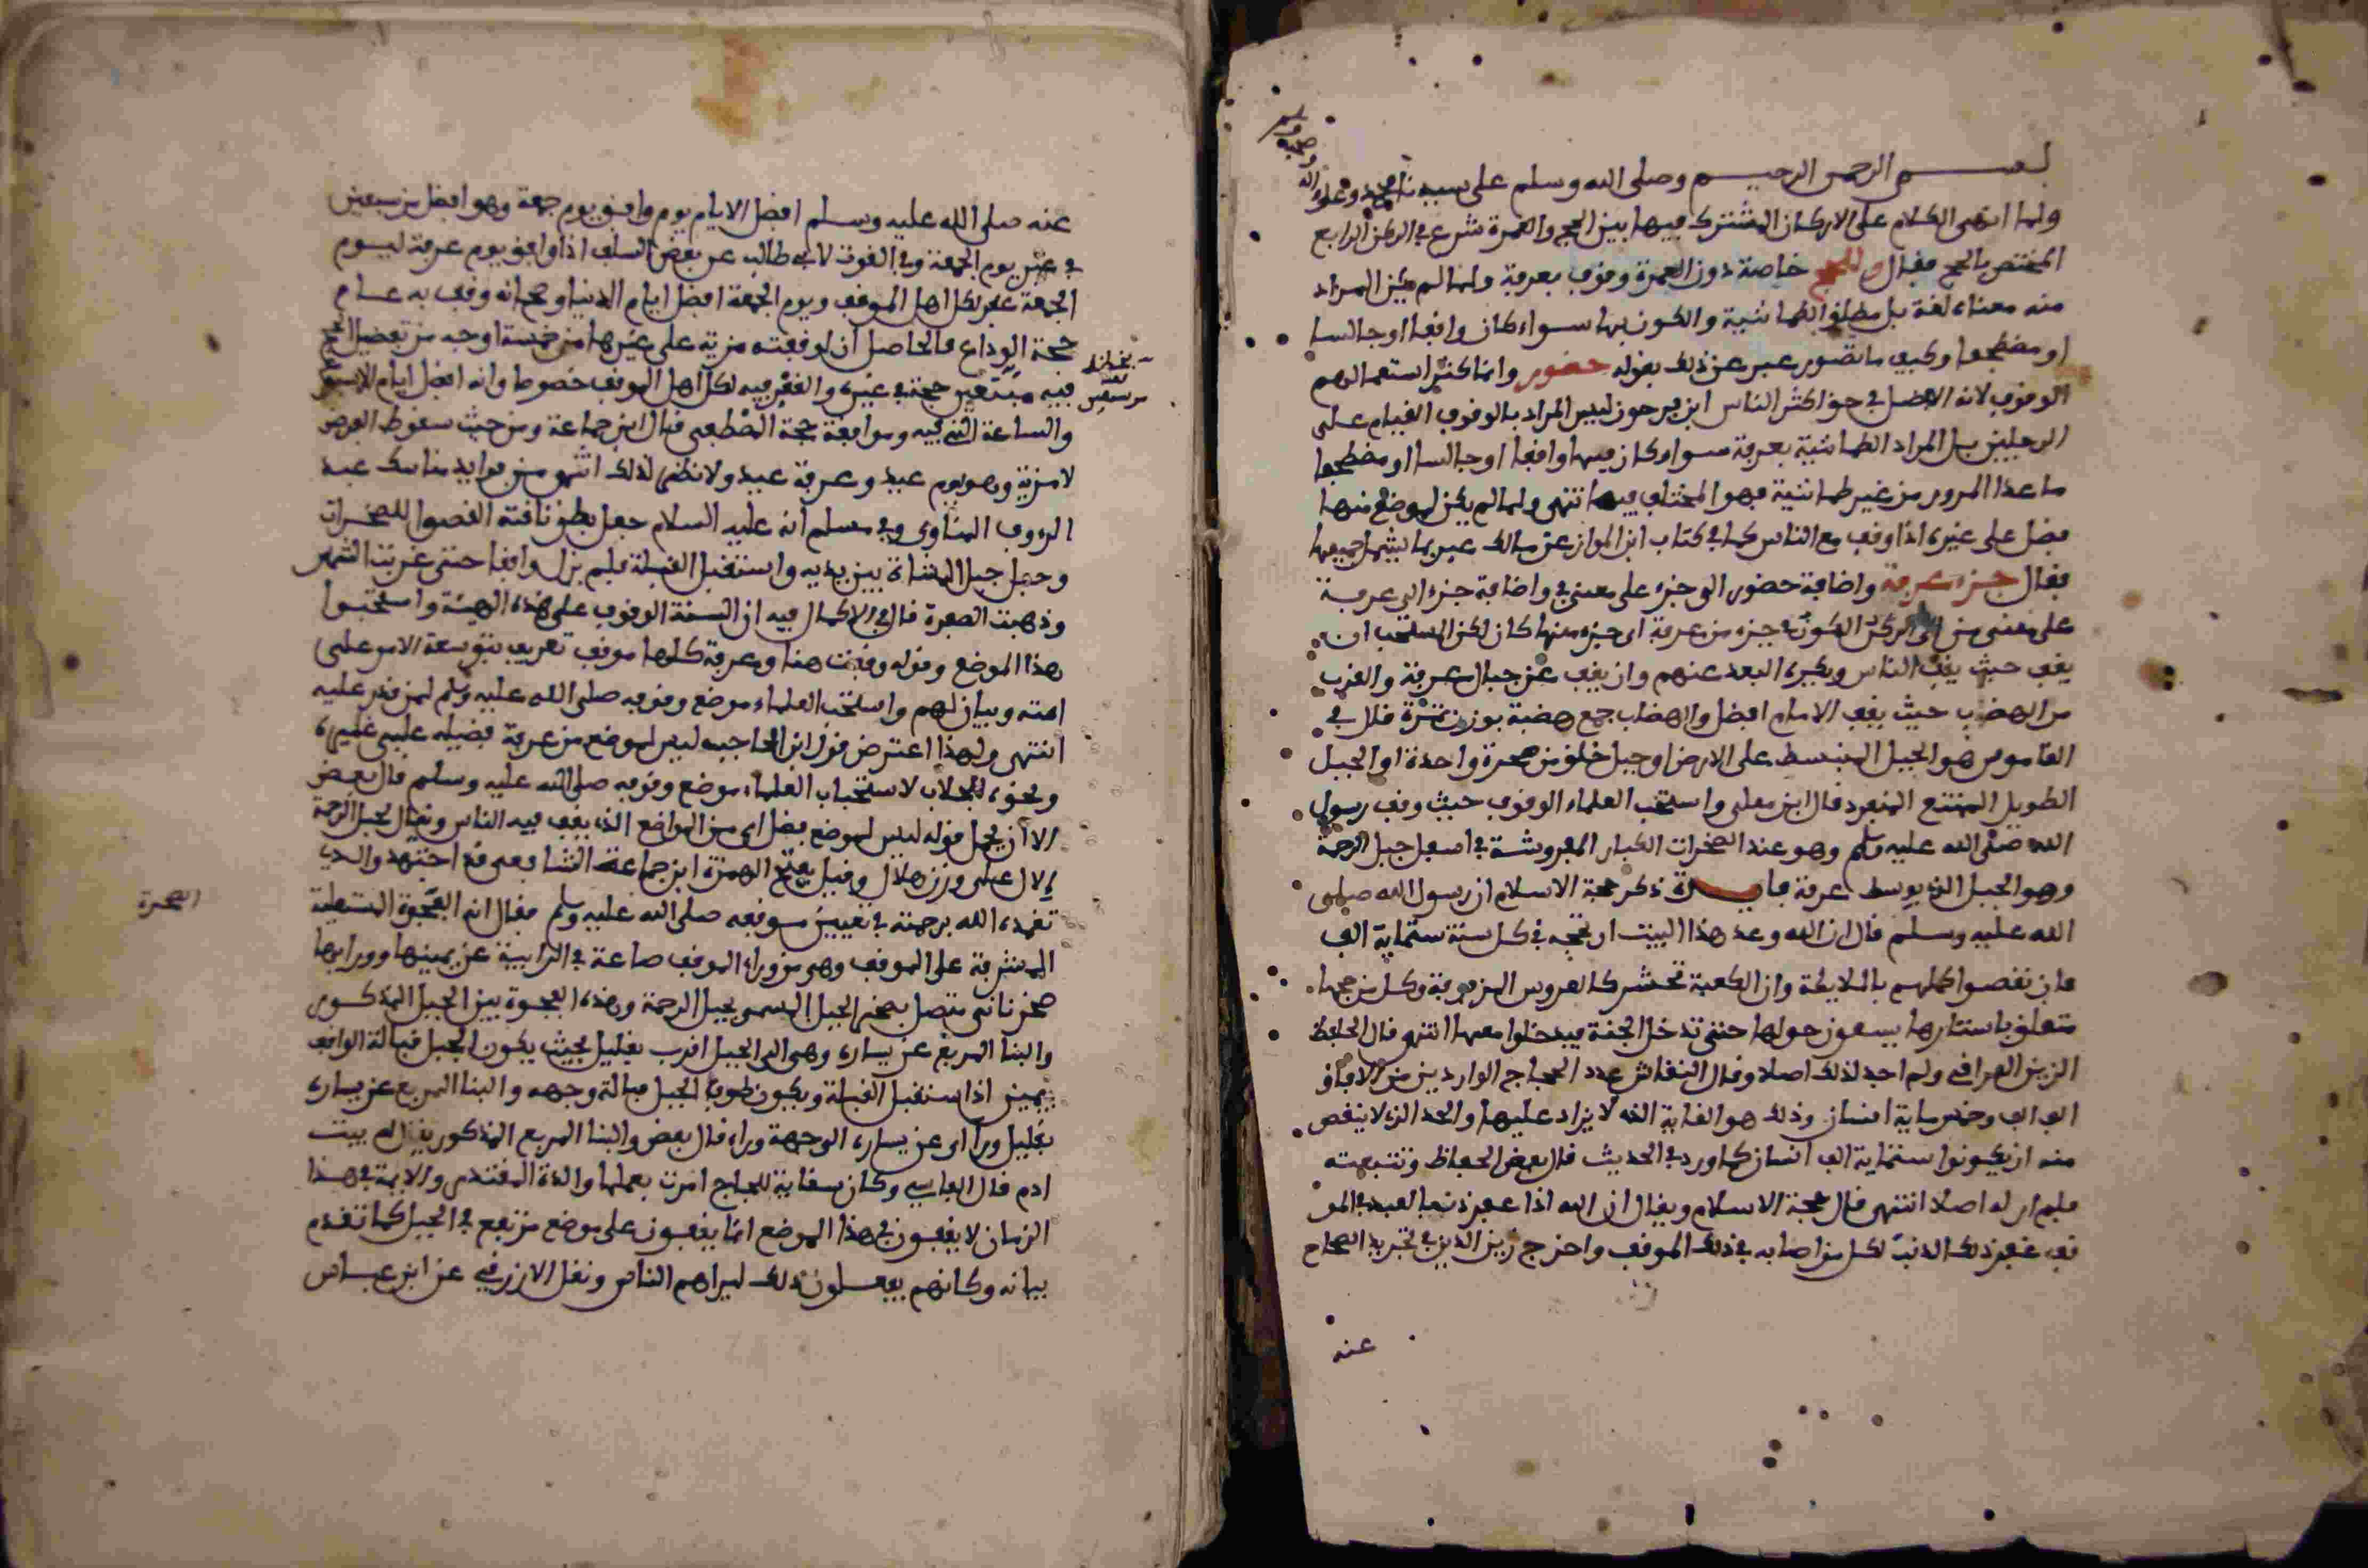 بسم الرحمن الرحيم وصلى الله وسلم على سيدنا محمد وعلى اله
وصحبه وسلم
ولما انتهى الكلام على الاركان المشترك فيها بين الحج والعمرة شرع في الركن الرابع
المختص بالحج فقال وللحج خاصة دون العمرة وقوف بعرفة ولما لم يكن المراد
منه معناه لغة بل مطلق الطمانية والكون بها سواء كان واقفا او جالسا
او مضطجعا وكيف ما تصور عبر عن ذلك بقوله حضور وانما كثر استعمالهم
الوقوف لانه الافضل في حق اكثر الناس ابن فرحون ليس المراد بالوقوف القيام على
الرجلين بل المراد الطمانية بعرفة سواء كان فيها واقفا او جالسا او مضطجعا
ما عدا المرور من غير طمانية فهو المختلف فيه انتهى ولما لم يكن لموضع منها
فضل على غيره اذا وقف مع الناس كما في كتاب ابن المواز عن مالك عبر بما يشمل جميعها
فقال جزء عرفة واضافة حضور الى جزء على معنى في واضافة جزء الى عرفة
على معنى من اي الركن الكون في جزء من عرفة اي جزء منها كان لكن المستحب ان
يقف حيث يقف الناس ويكره البعد عنهم وان يقف عن جبال عرفة والقرب
من الهضاب حيث يقف الامام افضل والهضاب جمع هضبة بوزن تمرة قال في
القاموس هو الجبل المنبسط على الارض او جبل خلق من صخرة واحدة او الجبل
الطويل الممتنع المنفرد قال ابن معلى واستحب العلماء الوقوف حيث وقف رسول
الله صلى الله عليه وسلم وهو عند الصخرات الكبار المفروشة في اسفل جبل الرحمة
وهو الجبل الذي بوسط عرفة فايدة ذكر حجة الاسلام ان رسول الله صلى
الله عليه وسلم قال ان الله وعد هذا البيت ان يحجه في كل سنة ستماية الف
فان نقصوا كملهم بالملايكة وان الكعبة تحشر كالعروس المزفوفة وكل من حجها
متعلق باستارها يسعون حولها حتى تدخل الجنة فيدخلوا معها انتهى قال الحافظ
الزين العراقي ولم اجد لذلك اصلا وقال النقاش عدد الحجاج الواردين من الافاق
الف الف وخمس ماية انسان وذلك هو الغاية الذي لا يزاد عليها والحد الذي لا ينقص
منه ان يكونوا ستماية الف انسان كما ورد في الحديث قال بعض الحفاظ وتتبعته
فلم ار له اصلا انتهى قال حجة الاسلام ويقال ان الله اذا غفر ذنبا لعبد في المو
قف غفر ذلك الذنب لكل من اصابه في ذلك الموقف واخرج رزين الدين في تجريد الصحاح
عنه
عنه صلى الله عليه وسلم افضل الايام يوم وافق يوم جمعة وهو افضل من سبعين
في غير يوم الجمعة وفي القوت لابي طالب عن بعض السلف اذا وافق يوم عرفة ليوم
الجمعة غفر لكل اهل الموقف ويوم الجمعة افضل ايام الدنيا وصح انه وقف به عام
حجة الوداع فالحاصل ان لوقفته مزية على غيرها من خمسة اوجه من تفضيل الحج
فيه حجة في غيره والغفر فيه لكل اهل الموقف خصوصا وانه افضل ايام الاسبوع
من سبعين
والساعة التي فيه وموافقة حجة المصطفى قال ابن جماعة ومن حيث سقوط الفرض
لا مزية وهو يوم عيد وعرفة عيد ولا نظير لذلك انتهى من فوايد مناسك عبد
الرءوف المناوي وفي مسلم انه عليه السلام جعل بطن ناقته القصوا للصخرات
وجعل جبل المشاة بين يديه واستقبل القبلة فلم يزل واقفا حتى غربت الشمس
وذهبت الصفرة قال في الاكمال فيه ان السنة الوقوف على هذه الهيئة واستحبوا
هذا الموضع وقوله وقفت هنا وعرفة كلها موقف تعريف بتوسعة الامر على
امته وبيان لهم واستحب العلماء موضع وقوفه صلى الله عليه وسلم لمن قدر عليه
انتهى ولهذا اعترض قول ابن الحاجب ليس لموضع من عرفة فضيلة على غيره
ونحوه للجلاب لاستحباب العلماء موضع وقوفه صلى الله عليه وسلم قال بعض
الا ان يحمل قوله ليس لموضع فضل اي من المواضع الذي يقف فيه الناس ويقال لجبل الرحمة
إلال على وزن هلال وقيل بفتح الهمزة ابن جماعة الشافعي قد اجتهد والدي
تغمده الله برحمته في تعيين موقفه صلى الله عليه وسلم فقال انه الفجوة المستعلية
الفجوة
المشرفة على الموقف وهي من وراء الموقف صاعة في الرابية عن يمينها وورايها
صخر ناتي متصل بصخر الجبل المسمى بجبل الرحمة وهذه الفجوة بين الجبل المذكور
والبنا المربع عن يساره وهي الى الجبل اقرب بقليل بحيث يكون الجبل قبالة الواقف
بيمين اذا استقبل القبلة ويكون طرف الجبل قبالة وجهه والبنا المربع عن يساره
بقليل ورا اي عن يساره الى جهة وراء قال بعض والبنا المربع المذكور يقال له بيت
ادم قال الفاسي وكان سقاية للحجاج امرت بعملها والدة المقتدر والايمة في هذا
الزمان لا يقفون في هذا الموضع انما يقفون على موضع مرتفع في الجبل كما تقدم
بيانه وكانهم يفعلون ذلك ليراهم الناس ونقل الازرقي عن ابن عباس